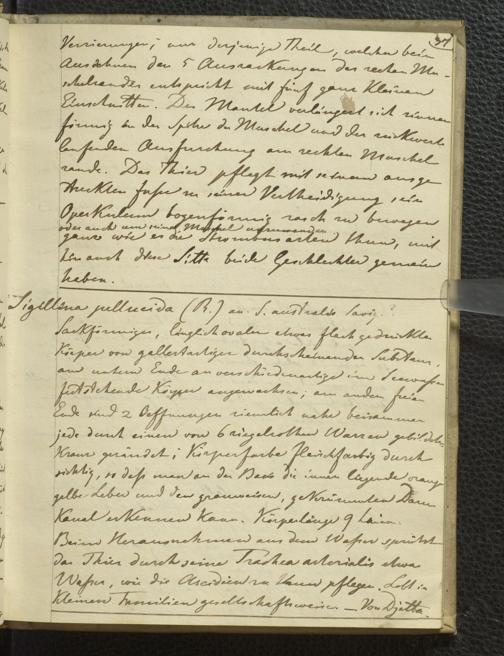 37
Verzierungen; nur derjenige Theil, welcher beim
Ausdehnen den 5 Auszackungen des rechten Mu-
schelrandes entspricht mit fünf ganz kleinen
Einschnitten. Der Mantel verlängert sich rinnen
förmig in der Spitze der Muschel und der rückwerts
laufenden Ausfurchung am rechten Muschel
rande. Das Thier pflegt mit seinem ausge
streckten Fuße zu seiner Vertheidigung sein
Operkulum bogenförmig rasch zu bewegen
oder auch um seine Muschel
ganz wie es die Strombusarten thun, mit
auch diese Sitte beide Geschlechter gemein
haben.
Sigillina pellucida (R.) an S. australis Savig.?
Sackförmiger, länglichovaler etwas flach gedrückter
Körper von gallertartiger durchscheinender Substanz,
am untern Ende an verschiedenartige im Seewasser
feststehende Körper angewachsen; am andern freien
Ende sind 2 Oeffnungen ziemlich nahe beisammen
jede durch einen von 6 ziegelrothen Warzen gebildeten
Kranz gerändet; Körperfarbe fleischfarbig durch
sichtig, so daß man an der Basis die innen liegende orange
gelbe Leber und den grauweisen, gekrümmten Darm
Kanal erkennen kann. Körperlänge 9 Linien.
Beim Herausnehmen aus dem Wasser spritzt
das Thier durch seine Trachea arterialis etwas
Wasser, wie die Ascidien zu thun pflegen. Lebt in
kleinen Familien gesellschaftsweise. — Von Djetta.